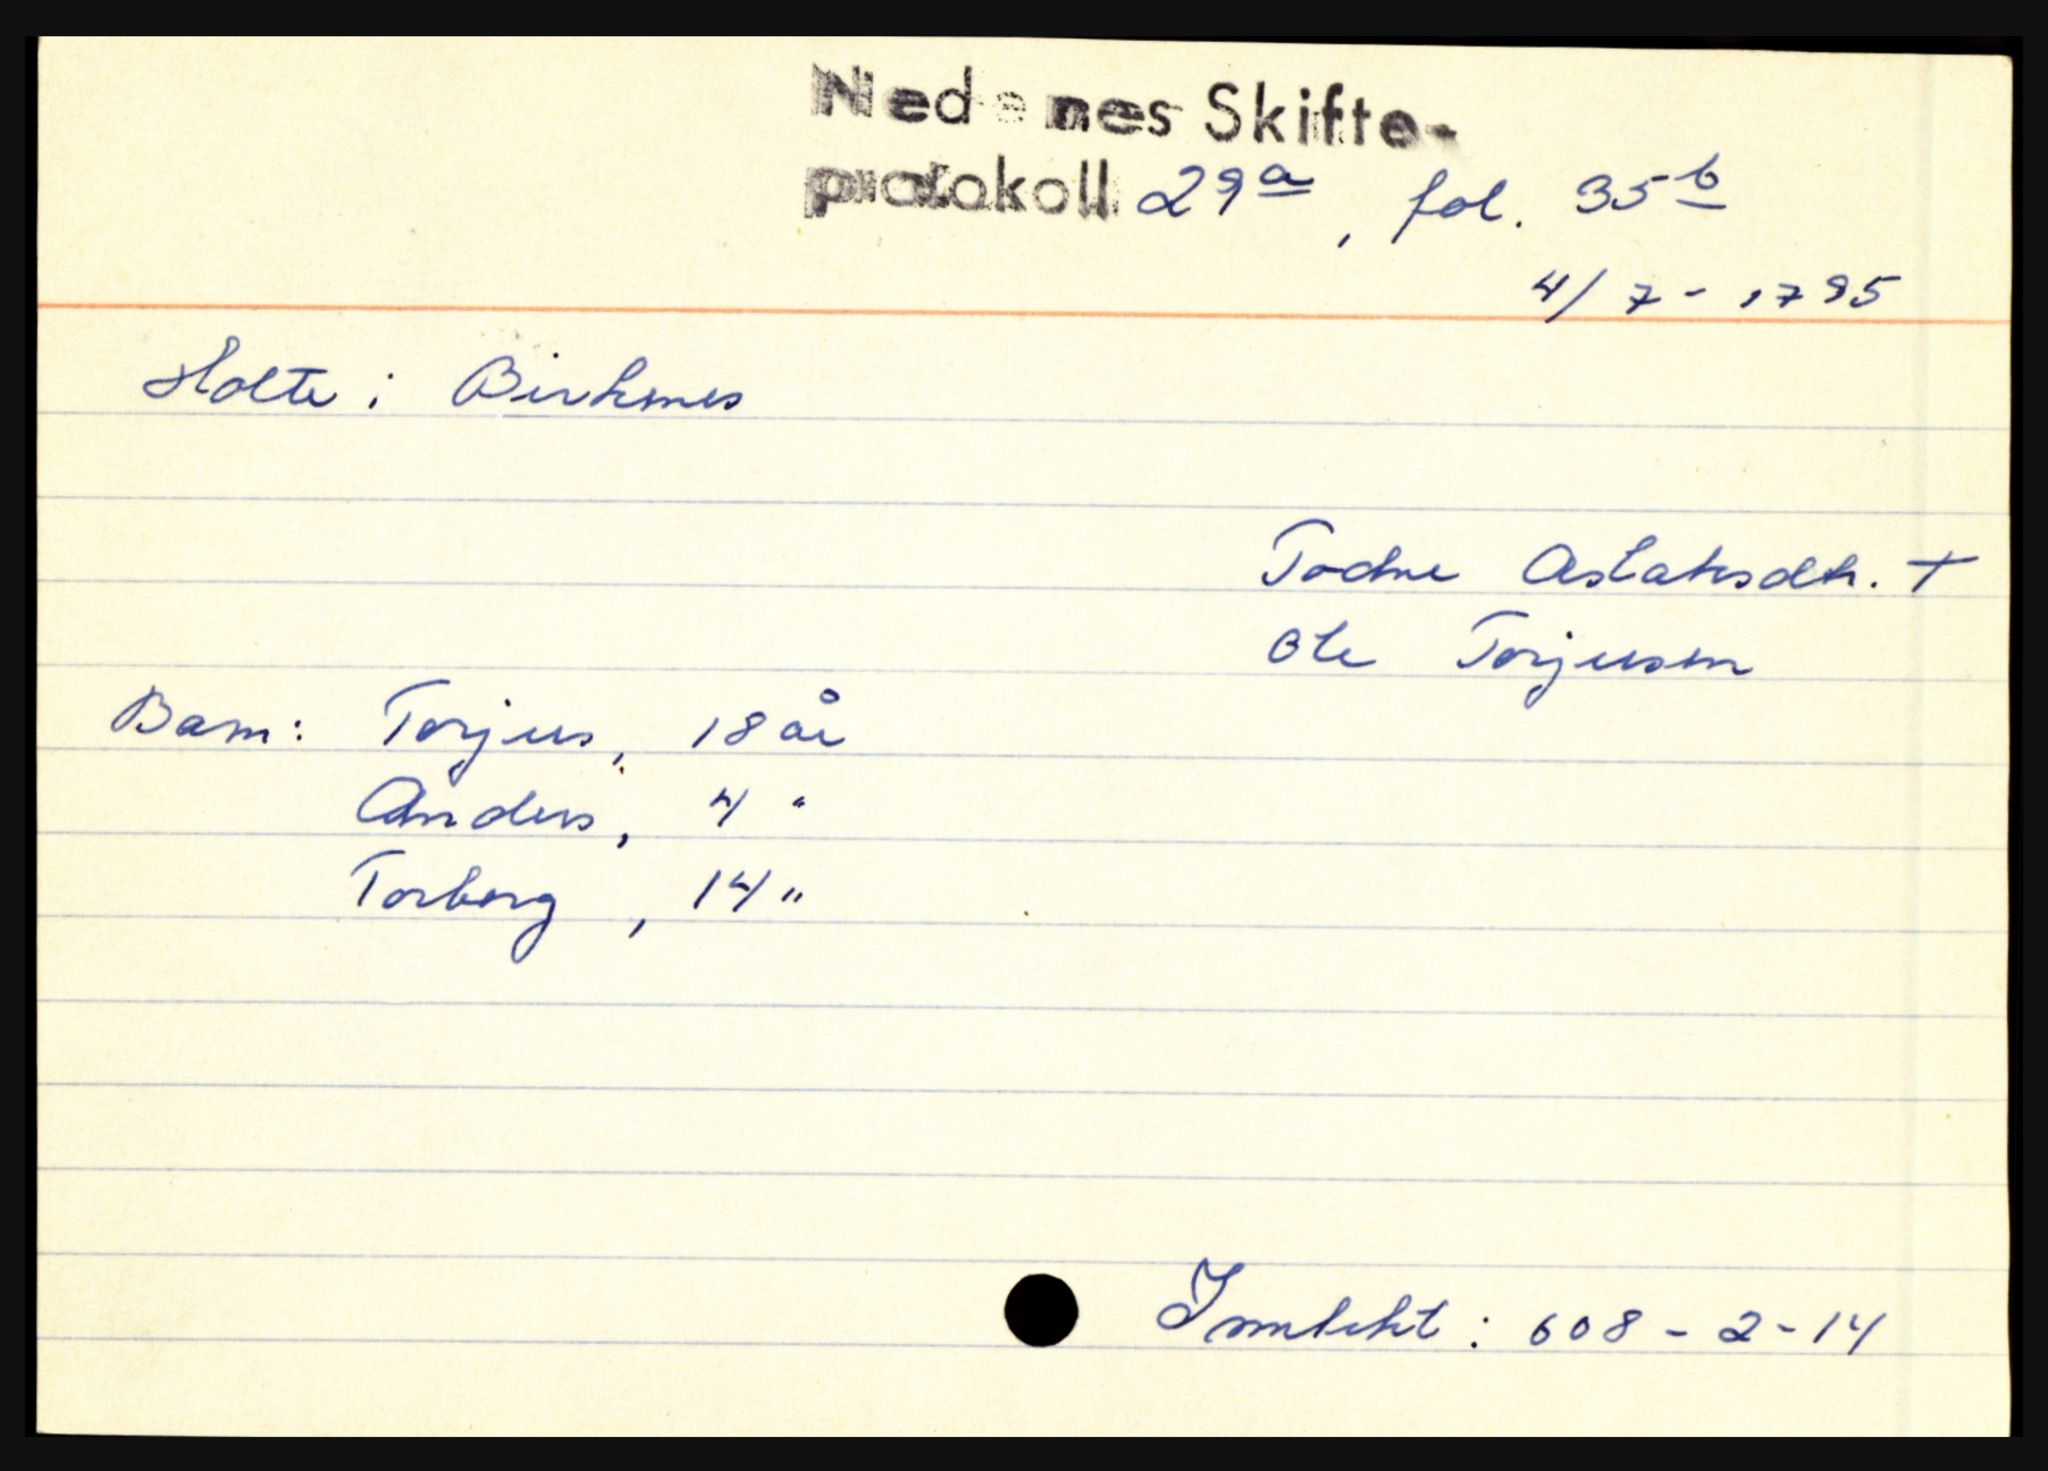 Nedenes Skifte-
protokoll 29a, fol. 35b
4/7-1795
Holte i Birkenes
Todne Aslaksdtr. +
Ole Torjusen
Barn: Torjus, 18 år
Anders, 4 "
Torborg, 14 "
Inntekt: 608-2-14